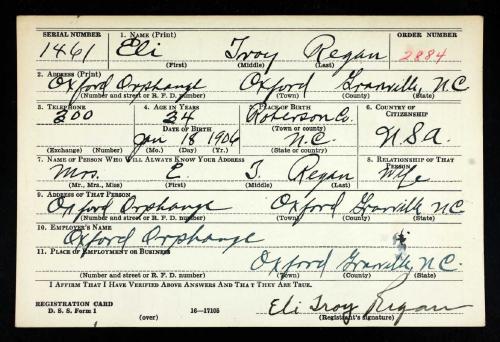 SERIAL NUMBER 1. NAME (Print) ORDER NUMBER
1461 Eli Troy Regan 2884
(First) (Middle) (Last)
2. ADDRESS (Print)
Oxford Orphange Oxford Granville, N.C.
(Number and street or R. F. D. number) (Town) (County) (State)
3. TELEPHONE 4. AGE IN YEARS 5. PLACE OF BIRTH 6. COUNTRY OF CITIZENSHIP
300 34 Roberson Co.
DATE OF BIRTH (Town or county)
Jan 18 1906 N.C. USA
(Exchange) (Number) (Mo.) (Day) (Yr.) (State or country)
7. NAME OF PERSON WHO WILL ALWAYS KNOW YOUR ADDRESS 8. RELATIONSHIP OF THAT PERSON
Mrs. E. T. Regan Wife
(Mr., Mrs., Miss) (First) (Middle) (Last)
9. ADDRESS OF THAT PERSON
Oxford Orphange Oxford Granville N.C.
(Number and street or R. F. D. number) (Town) (County) (State)
10. EMPLOYER'S NAME
Oxford Orphange
11. PLACE OF EMPLOYMENT OR BUSINESS
Oxford Granville, N.C.
(Number and street or R. F. D. number) (Town) (County) (State)
I AFFIRM THAT I HAVE VERIFIED ABOVE ANSWERS AND THAT THEY ARE TRUE.
Eli Troy Regan
REGISTRATION CARD
D. S. S. Form 1 (over) 16—17105 (Registrant's signature)